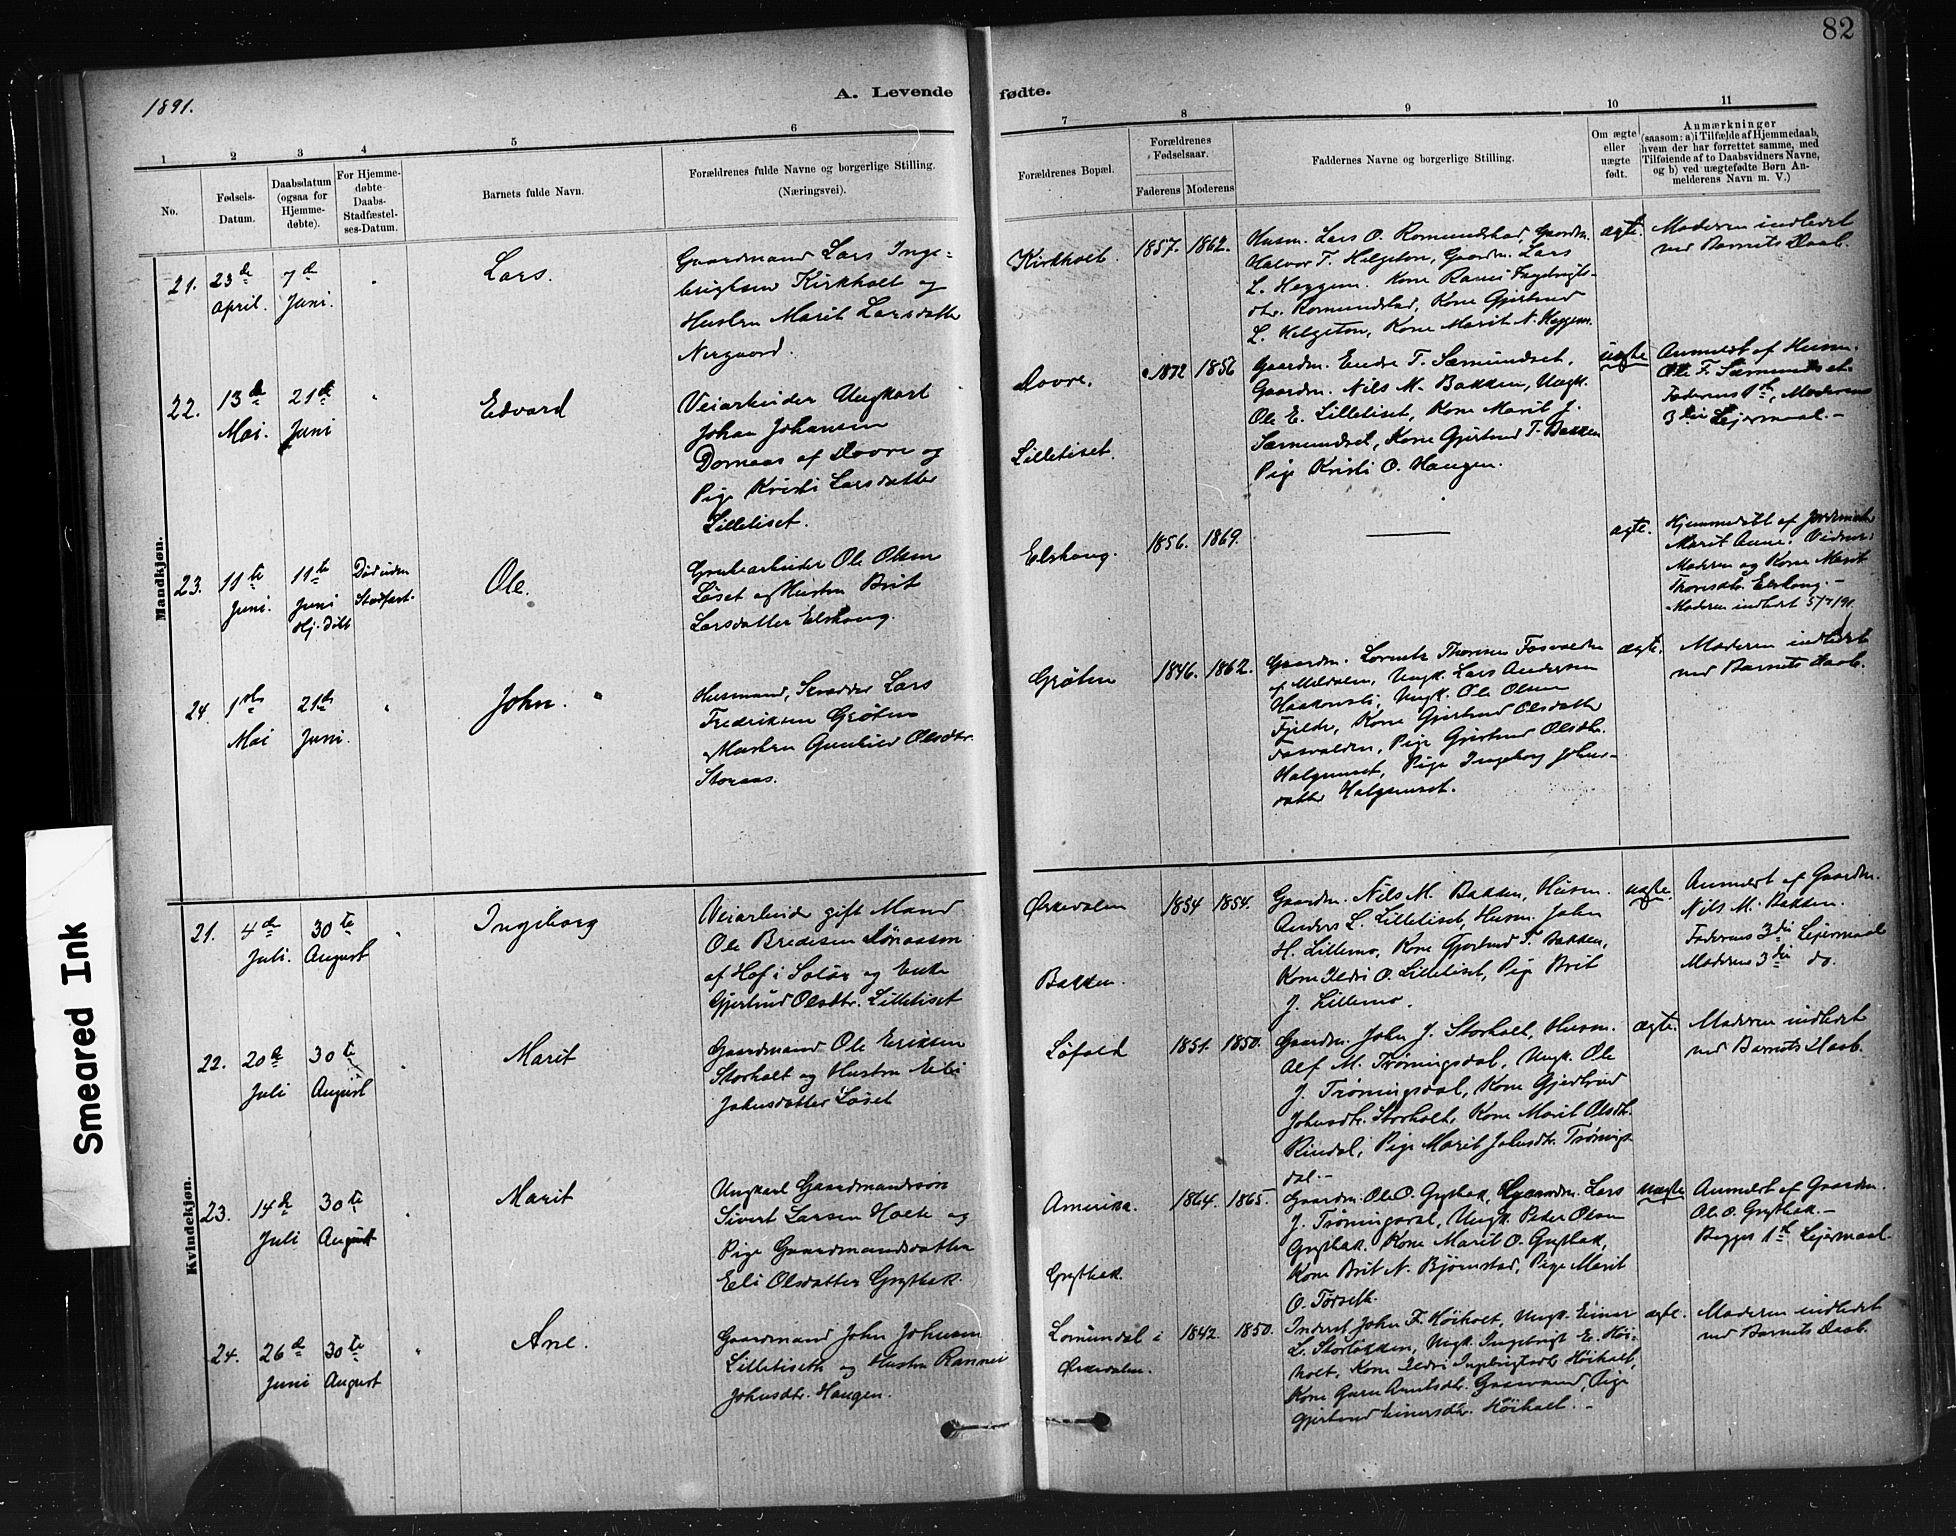 82
1891.
A. Levende fødte.
1 2 3 4 5 6 7 8 9 10 11
No.
Fødsels-Datum.
Daabsdatum (ogsaa for Hjemmedøbte).
For Hjemmedøbte Daabs-Stadfæstelses-Datum.
Barnets fulde Navn.
Forældrenes fulde Navne og borgerlige Stilling.
(Næringsvei).
Forældrenes Bopæl.
Forældrenes Fødselsaar.
Faderens Moderens
Faddernes Navne og borgerlige Stilling.
Om ægte eller uægte født.
Anmærkninger
(saasom: a) i Tilfælde af Hjemmedaab,
hvem der har forrettet samme, med
Tilføiende af to Daabsvidners Navne,
og b) ved uægtefødte Børn Anmelderens Navn m. V.)
Mandkjøn.
21. 23de April. 7de Juni. Lars.
Gaardmand Lars Inge-
brigtsen Kirkholt og
Hustru Marit Larsdatter
Nergaard.
Kirkholt. 1857. 1862.
Husm. Lars O. Romundstad, Gaardm.
Halvor T. Helgeton, Gaardm. Lars
L. Heggem. Kone Ranei Ingebrigts-
dtr. Romundstad, Kone Gjertrud
L. Helgeton, Kone Marit N. Heggem.
ægte.
Moderen indledet
ved Barnets Daab.
22. 13de Mai. 21de Juni Edvard
Veiarbeider Ungkarl
Johan Johansen
Domaas af Dovre og
Pige Kristi Larsdatter
Lilletiset.
Dovre.
Lilletiset.
1872 1856
Gaardm. Endre T. Sæmundset,
Gaardm. Nils M. Bakken, Ungk.
Ole E. Lilletiset, Kone Marit J.
Sæmundset, Kone Gjertrud T. Bakken
Pige Kristi O. Haugen.
uægte
Anmeldt af Husm.
Ole F. Sæmundset.
Faderens 1ste, Moderens
3die Leiermaal. -
23. 11te Juni. 11te Juni Hj. døbt Død uden Stadfæst. Ole.
Grubearbeider Ole Olsen
Løset og Hustru Brit
Larsdatter Elshaug.
Elshaug. 1856. 1869.
ægte.
Hjemmedøbt af Jordemoder
Marit Aune. Vidner:
Moderen og Kone Marit
Thoresdtr. Elshaug. -
Moderen indledt 5/7/91.
24. 1ste Mai 21de Juni. John.
Husmand, Skrædder Lars
Fredriksen Grøten
Hustru Gunhild Olsdtr.
Storaas.
Grøten 1846. 1862.
Gaardm. Lorents Thoresen Fosvolden
af Meldalen, Ungk. Lars Andersen
Ungk. Ole Olsen
Kone Gjertrud Olsdatter
Fosvolden, Pige Gjertrud Olsdtr.
Halgunset, Pige Ingeborg Johns-
datter Halgunset.
ægte.
Moderen indledet
ved Barnets Daab.
Kvindekjøn.
21. 4de Juli. 30te August Ingeborg
Veiarbeider gift Mand
Ole Bredesen
af Hof i Solør og Enke
Gjertrud Olsdtr. Lilletiset
Ørkedalen
Bakken.
1854 1854.
Gaardm. Nils M. Bakken, Husm.
Anders L. Lilletiset, Husm. John
H. Lillemo, Kone Gjertrud T. Bakken,
Kone Ildri O. Lilletiset, Pige Brit
J. Lillemo.
uægte.
Anmeldt af Gaardm.
Nils M. Bakken.
Faderens 3die Leiermaal
Moderens 3die do.
22. 20de Juli 30te August Marit
Gaardmand Ole Eriksen
Storholt og Hustru Eli
Johnsdatter Løset
Løfald 1851. 1850.
Gaardm. John J. Storholt, Husm.
Alf M. Trøningsdal, Ungk. Ole
J. Trøningsdal, Kone Gjertrud
Johnsdtr. Storholt, Kone Marit Olsdtr.
Rindal, Pige Marit Johnsdtr. Trønings
dal. -
ægte.
Moderen indledet
ved Barnets Daab.
23. 14de Juli 30te August Marit
Ungkarl Gaardmandssøn
Sivert Larsen Holte og
Pige Gaardmandsdatter
Eli Olsdatter Grytbak.
Amerika.
Grytbak.
1864. 1865.
Gaardm. Ole O. Grytbak, Gaardm. Lars
J. Trøningsdal, Ungk. Peder Olsen
Grytbak. Kone Marit O. Grytbak,
Kone Brit N. Bjørnstad, Pige Marit
O. Torseth.
uægte
Anmeldt af Gaardm.
Ole O. Grytbak. -
Begges 1ste Leiermaal.
24. 26de Juni 30te August Ane.
Gaardmand John Johnsen
Lilletiseth og Hustru Rannei
Johnsdtr. Haugen.
Lomundal i
Ørkedalen.
1842. 1850.
Inderst John F. Høiholt, Ungk. Einar
L. Storløkken, Ungk. Ingebrigt E. Høi-
holt, Kone Ildri Ingebrigtsdtr. Høiholt,
Kone Guru Arntsdtr. Gaasvand, Pige
Gjertrud Einersdtr. Høiholt. -
ægte.
Moderen indledet
ved Barnets Daab.
Smeared Ink